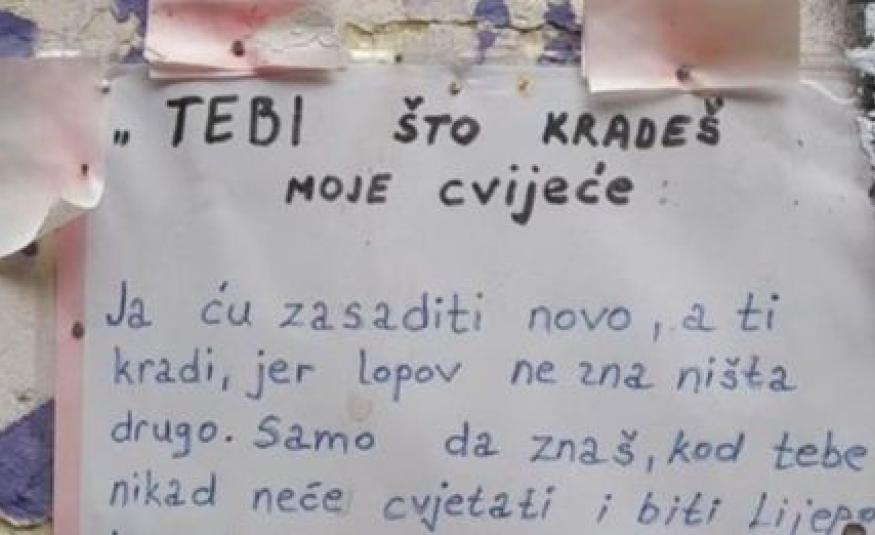 „ TEBI ŠTO KRADEŠ
MOJE cvijeće :
Ja ću zasaditi novo, a ti
kradi, jer lopov ne zna ništa
drugo. Samo da znaš, kod tebe
nikad neće cvjetati i biti lijepo